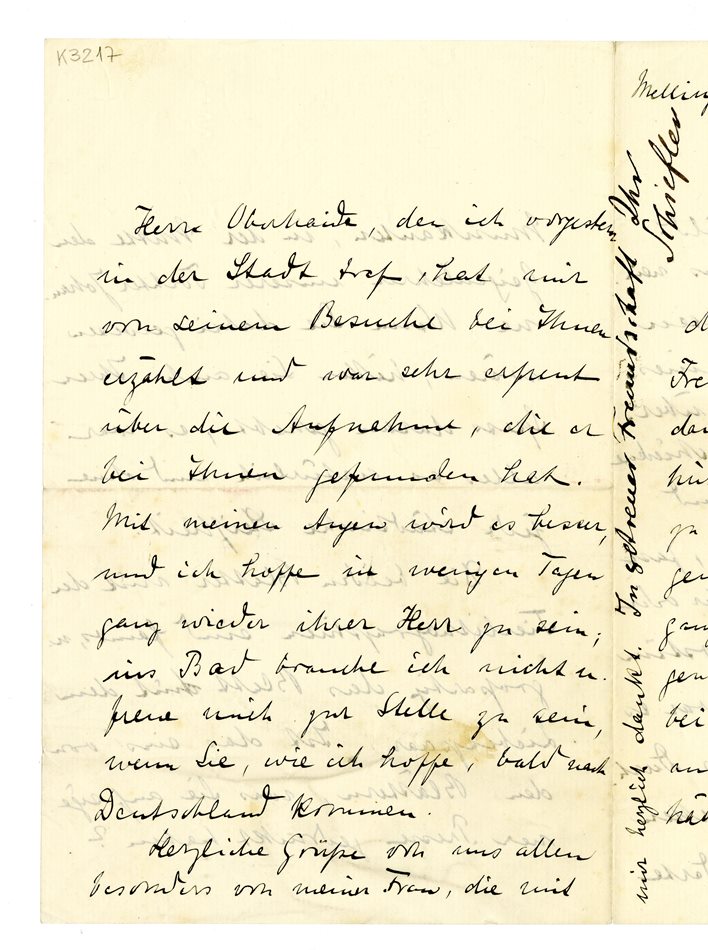 K3217
Herrn Oberheide, den ich vorgestern
in der Stadt traf, hat mir
von seinem Besuche bei Ihnen
erzählt und war sehr erfreut
über die Aufnahme, die er
bei Ihnen gefunden hat.
Mit meinen Augen wird es besser,
und ich hoffe in wenigen Tagen
ganz wieder ihrer Herr zu sein;
ins Bad brauche ich nicht u.
freue mich zur Stelle zu sein,
wenn Sie, wie ich hoffe, bald nach
Deutschland kommen.
Herzliche Grüße von uns allen
besonders von meiner Frau, die mit
mir herzlich dankt. In getreuer Freundschaft Ihr
Schiefler
Melling